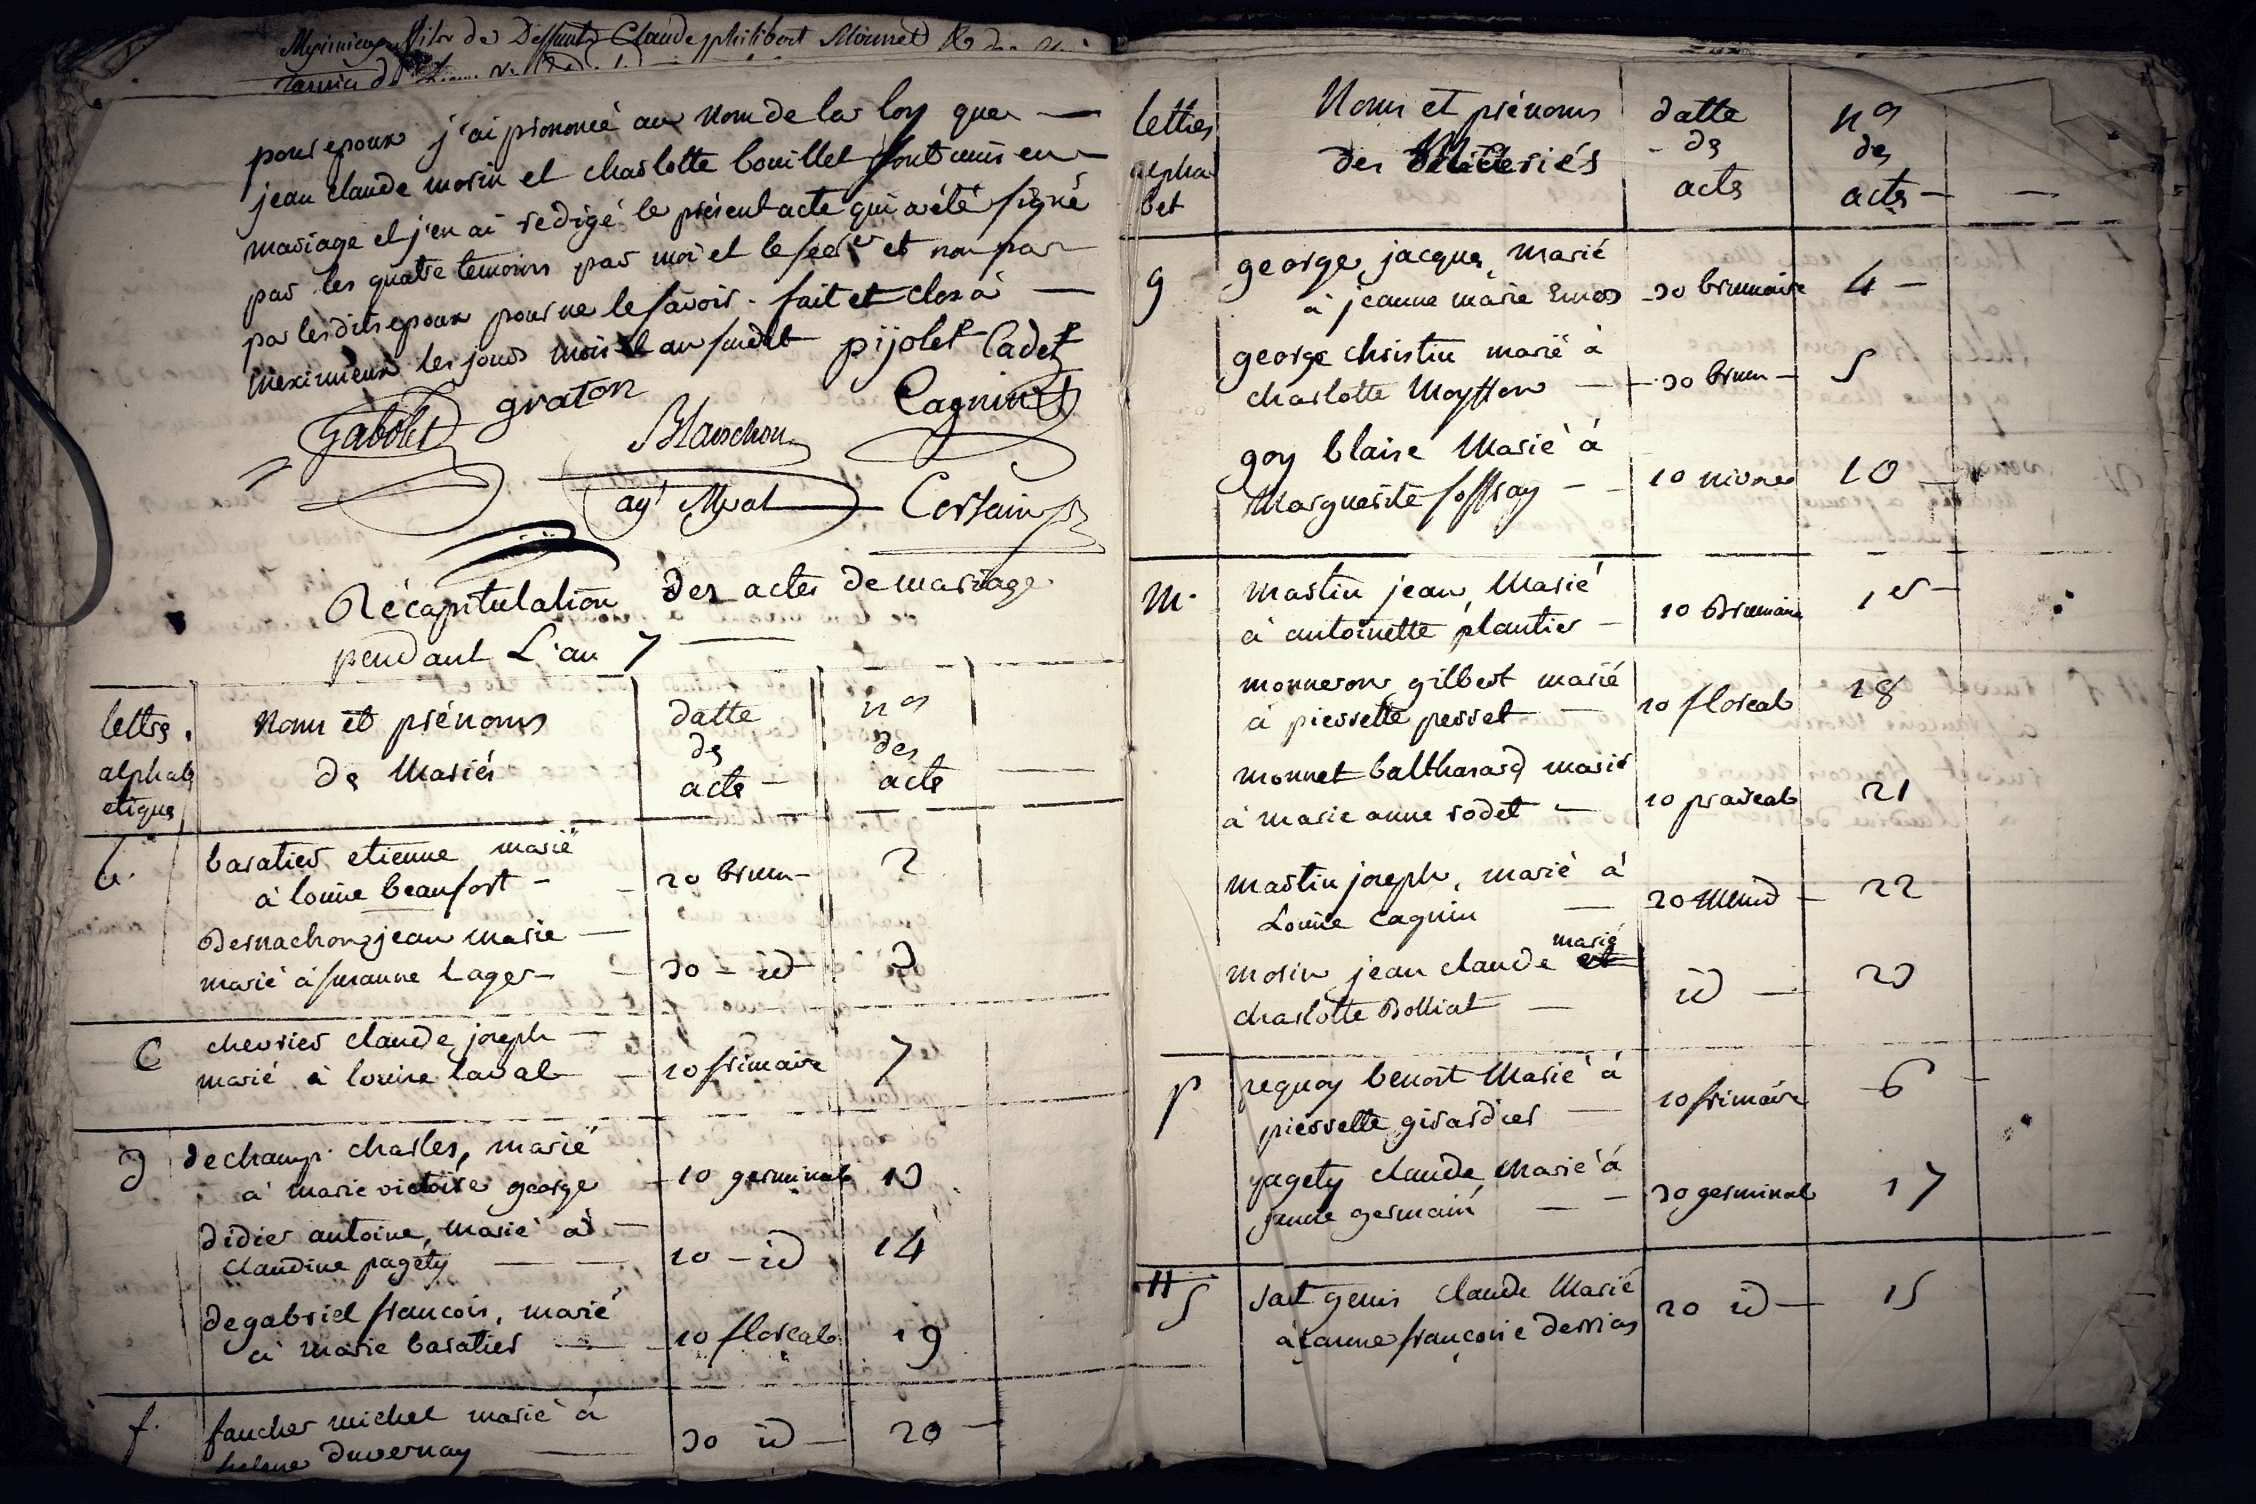 fils de Deffunt Claude philibert Monnet & de
pour epoux j'ai prononcé au Nom de la loy que —
jean claude morin et charlotte bouillet sont unis en —
mariage et j'en ai redigé le présent acte qui a été signé
par les quatre temoins par moi et le secre et non par
par lesdits epoux pour ne le savoir. fait et clos à —
meximieux les jours mois et an susdit pijolet Cadet
gabolet graton Blanchon Cagnin
agt Certain
Récapitulation des actes de mariage
pendant L'an 7 —
lettre alphab etique
Noms et prénoms de Mariés
datte de acte —
nos des acte
b. baratier etienne marié
à louise beaufort — 20 brum — 2
Bernachon jean marie —
marié à smanne Lager — 30 — id 3
C chevrier claude joseph —
marié à louise laval — 10 frimaire 7
D dechamp charles, marié
à marie victoire george — 10 germinal 13
didier antoine, marié à —
claudine pagety — — 10 — id 14
degabriel francois, marié
à marie baratier — 10 floreal 19
f. faucher michel marié à
duvernay — 30 id — 20 —
lettres alpha bet
Noms et prénoms des Mariés
datte de acte
nos des actes —
g george jacques, marié
à jeanne marie — 30 brumaire 4 —
george christin marié à
charlotte Moyffon — 30 brum — 5
goy blaise Marié à
Marguerite soffray — 10 nivose 10
M. Martin jean, Marié
à antoinette plantier — 10 Brumaire 1er —
monneron gilbert marié
à pierrette perret — 10 floreal 18
monnet balthazard marié
à marie anne rodet — 10 praireal 21
Martin joseph, marié à
Louise cagnin — 20 Mmid — 22
morin jean claude et marié
charlotte Bolliat — id — 23
p pequoy benoit Marié à
pierrette girardier — 10 frimaire 6 —
pagety claude Marié à
jeanne germain — — 30 germinal 17
S sait genis claude Marié
à jeanne françoise derrias 20 id — 15